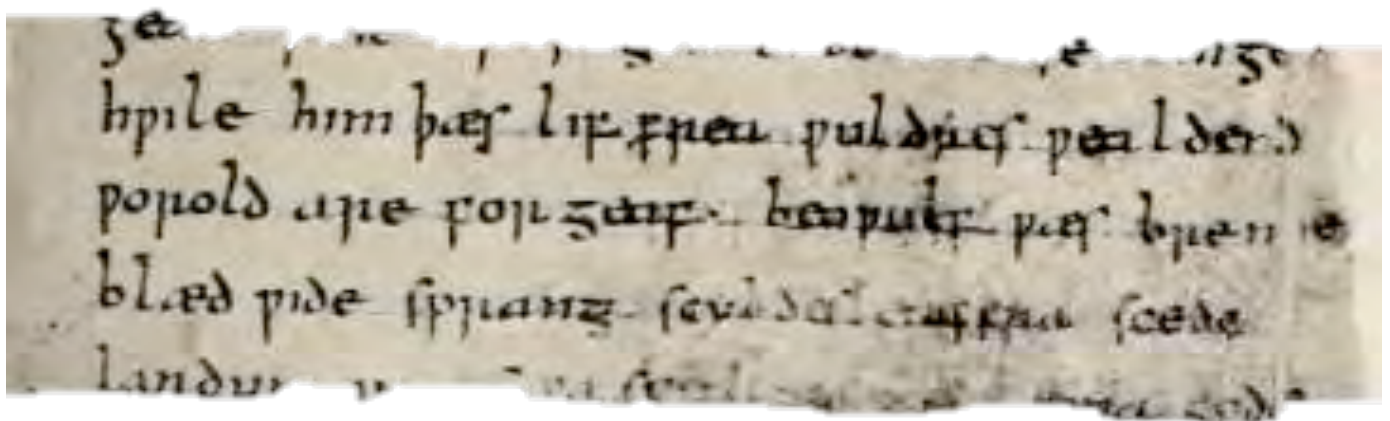 hƿile him þæs lif frea ƿuldres ƿealdend
ƿorold are for geaf. beoƿulf ƿæs breme
blæd ƿide sprang scyldes eafera scede
landum